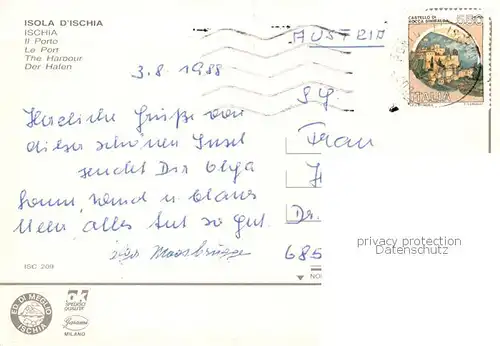 ISOLA D'ISCHIA
ISCHIA
Il Porto
Le Port
The Harbour
Der Hafen
AUSTRIA
CASTELLO DI
ROCCA SINIBALDA
550
ITALIA
3.8.1988
Herzliche Grüße von
dieser schönen Insel
sendet Dir Olga
Sonne, Sand u. blaues
Meer alles tut so gut.
Moosbrugger
Frau
Dr.
685
privacy protection
Datenschutz
ISC 209
ED. DI MEGLIO
ISCHIA
MILANO